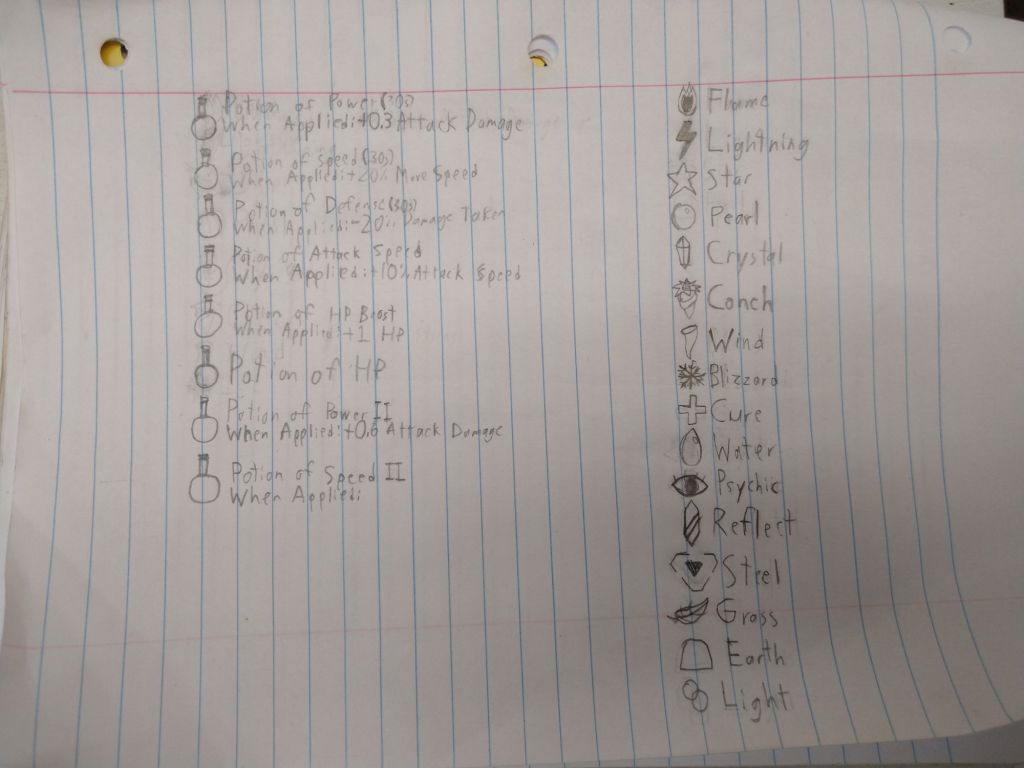 Potion of Power(30s)
When Applied:+0.3 Attack Damage
Potion of Speed(30s)
When Applied:+20% More Speed
Potion of Defense(30s)
When Applied:-20% Damage Taken
Potion of Attack Speed
When Applied:+10% Attack Speed
Potion of HP Boost
When Applied:+1 HP
Potion of HP
Potion of Power II
When Applied:+0.6 Attack Damage
Potion of Speed II
When Applied:
Flame
Lightning
Star
Pearl
Crystal
Conch
Wind
Blizzard
Cure
Water
Psychic
Reflect
Steel
Grass
Earth
Light